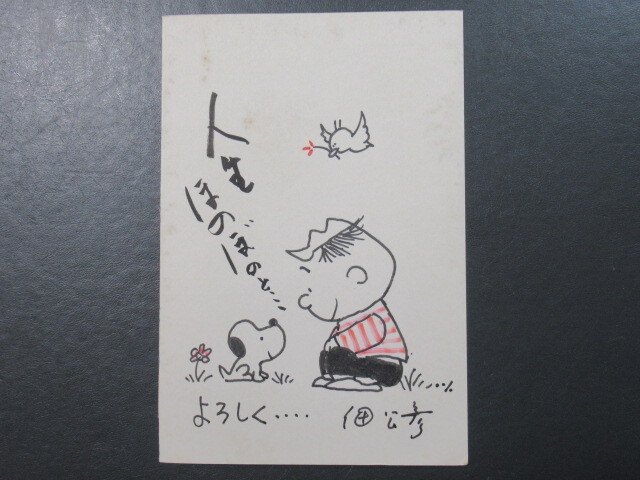 人生
ほのぼのと・・・・
よろしく・・・・
佃公彦